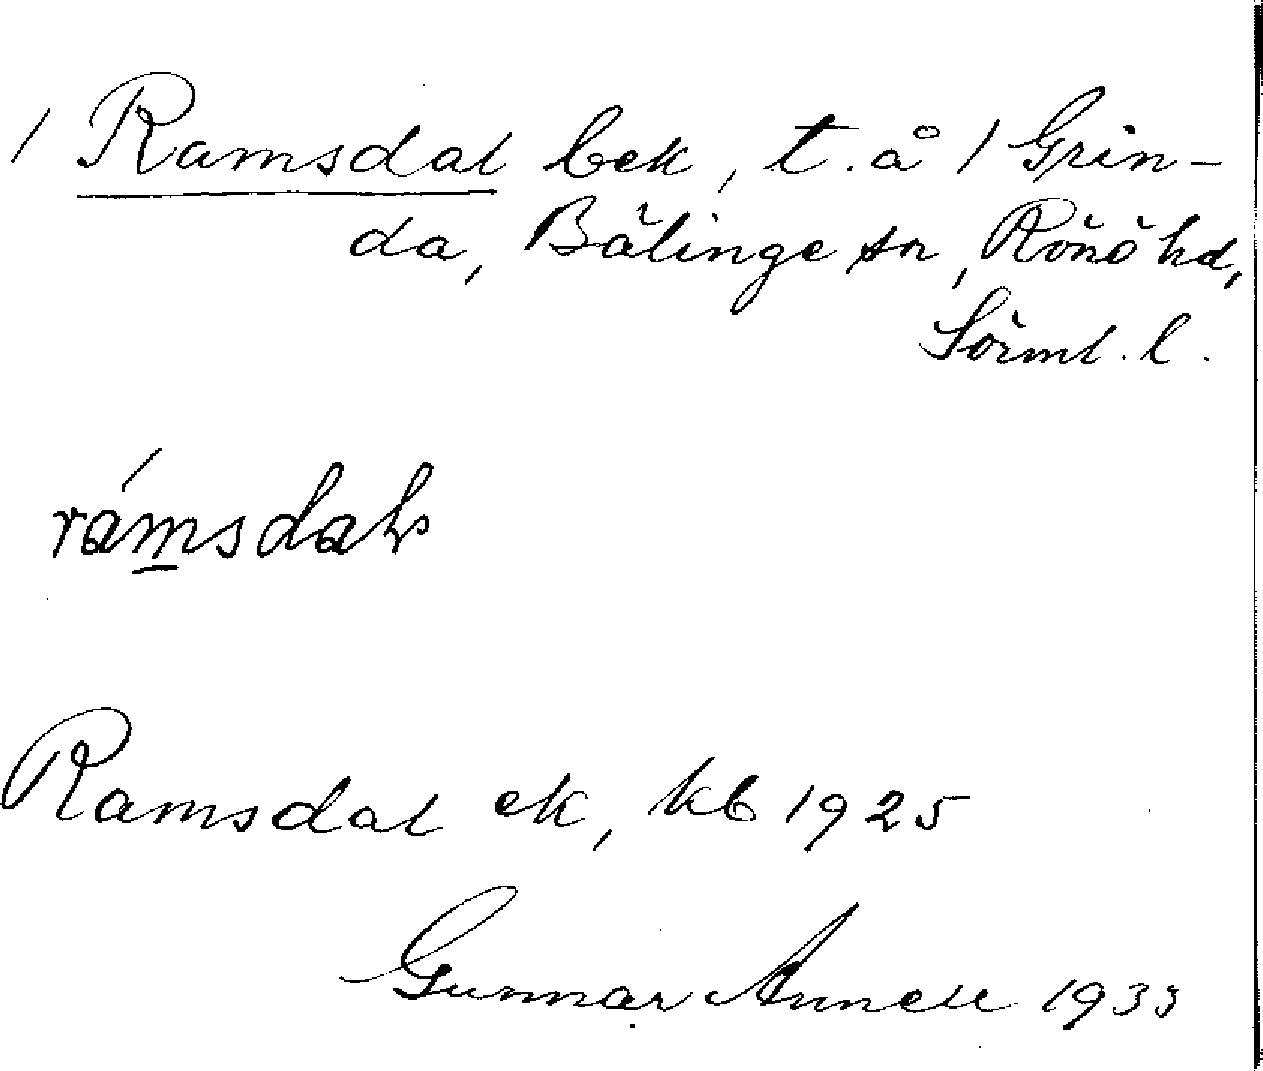 / Ramsdal bek, t. å / Grin-
da, Bälinge sn, Rönö hd,
Sörml. l.
rámsdals
Ramsdal ek, kb 1925
Gunnar Annell 1933